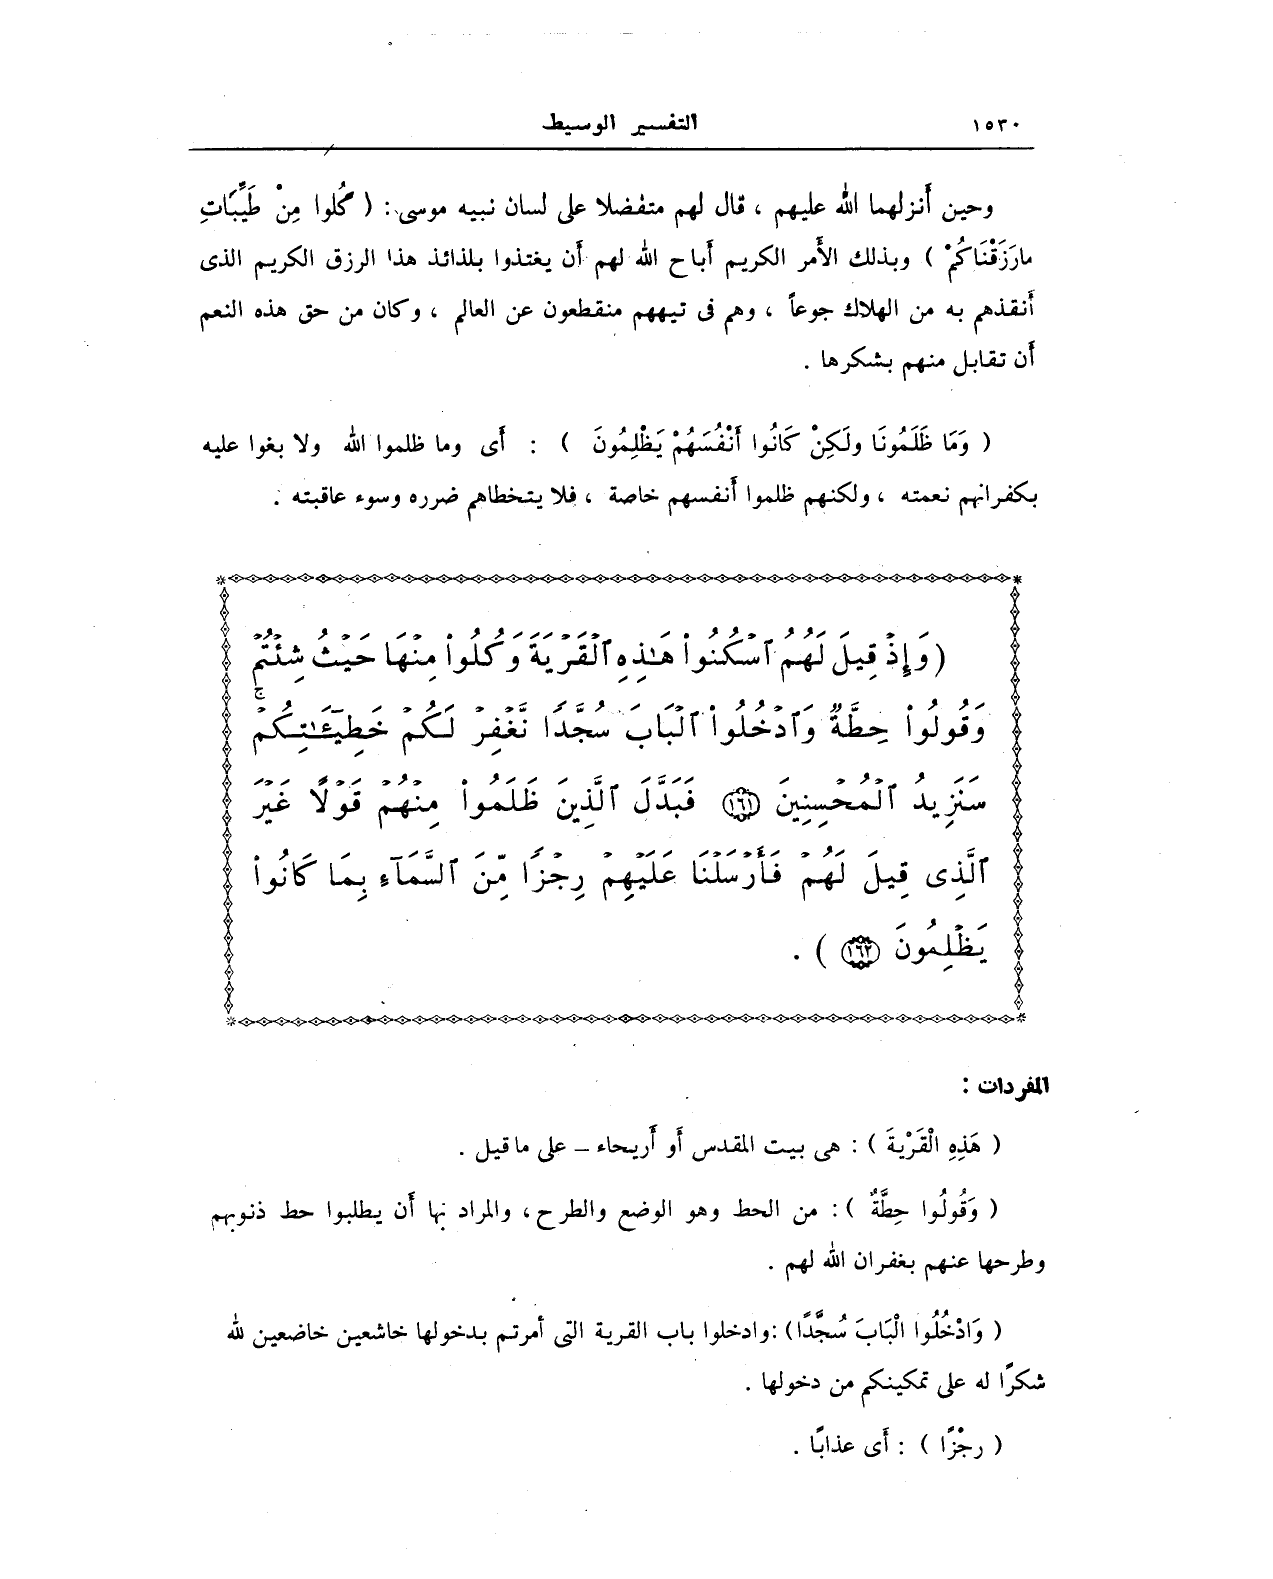 ١٥٣٠
التفسير الوسيط
وحين أَنزلهما الله عليهم ، قال لهم متفضلا على لسان نبيه موسى : ( كُلوا مِنْ طَيِّبَاتِ
مارَزَقْنَاكُمْ ) وبذلك الأَمر الكريم أَباح الله لهم أَن يغتذوا بلذائذ هذا الرزق الكريم الذى
أَنقذهم به من الهلاك جوعاً ، وهم فى تيههم منقطعون عن العالم ، وكان من حق هذه النعم
أَن تقابل منهم بشكرها .
( وَمَا ظَلَمُونَا ولَكِنْ كَانُوا أَنْفُسَهُمْ يَظْلِمُونَ ) : أَى وما ظلموا الله ولا بغوا عليه
بكفرانهم نعمته ، ولكنهم ظلموا أَنفسهم خاصة ، فلا يتخطاهم ضرره وسوء عاقبته .
(وَإِذْ قِيلَ لَهُمُ ٱسْكُنُوا۟ هَـٰذِهِ ٱلْقَرْيَةَ وَكُلُوا۟ مِنْهَا حَيْثُ شِئْتُمْ
وَقُولُوا۟ حِطَّةٌ وَٱدْخُلُوا۟ ٱلْبَابَ سُجَّدًا نَّغْفِرْ لَكُمْ خَطِيٓـَٔـٰتِكُمْ ۚ
سَنَزِيدُ ٱلْمُحْسِنِينَ ﴿١٦١﴾ فَبَدَّلَ ٱلَّذِينَ ظَلَمُوا۟ مِنْهُمْ قَوْلًا غَيْرَ
ٱلَّذِى قِيلَ لَهُمْ فَأَرْسَلْنَا عَلَيْهِمْ رِجْزًا مِّنَ ٱلسَّمَآءِ بِمَا كَانُوا۟
يَظْلِمُونَ ﴿١٦٢﴾ ) .
المفردات :
( هَذِهِ الْقَرْيةَ ) : هى بيت المقدس أَو أَريحاء – على ماقيل .
( وَقُولُوا حِطَّةٌ ) : من الحط وهو الوضع والطرح ، والمراد بها أَن يطلبوا حط ذنوبهم
وطرحها عنهم بغفران الله لهم .
( وَادْخُلُوا الْبَابَ سُجَّدًا) :وادخلوا باب القرية التى أمرتم بدخولها خاشعين خاضعين لله
شكرًا له على تمكينكم من دخولها .
( رِجْزًا ) : أَى عذابًا .